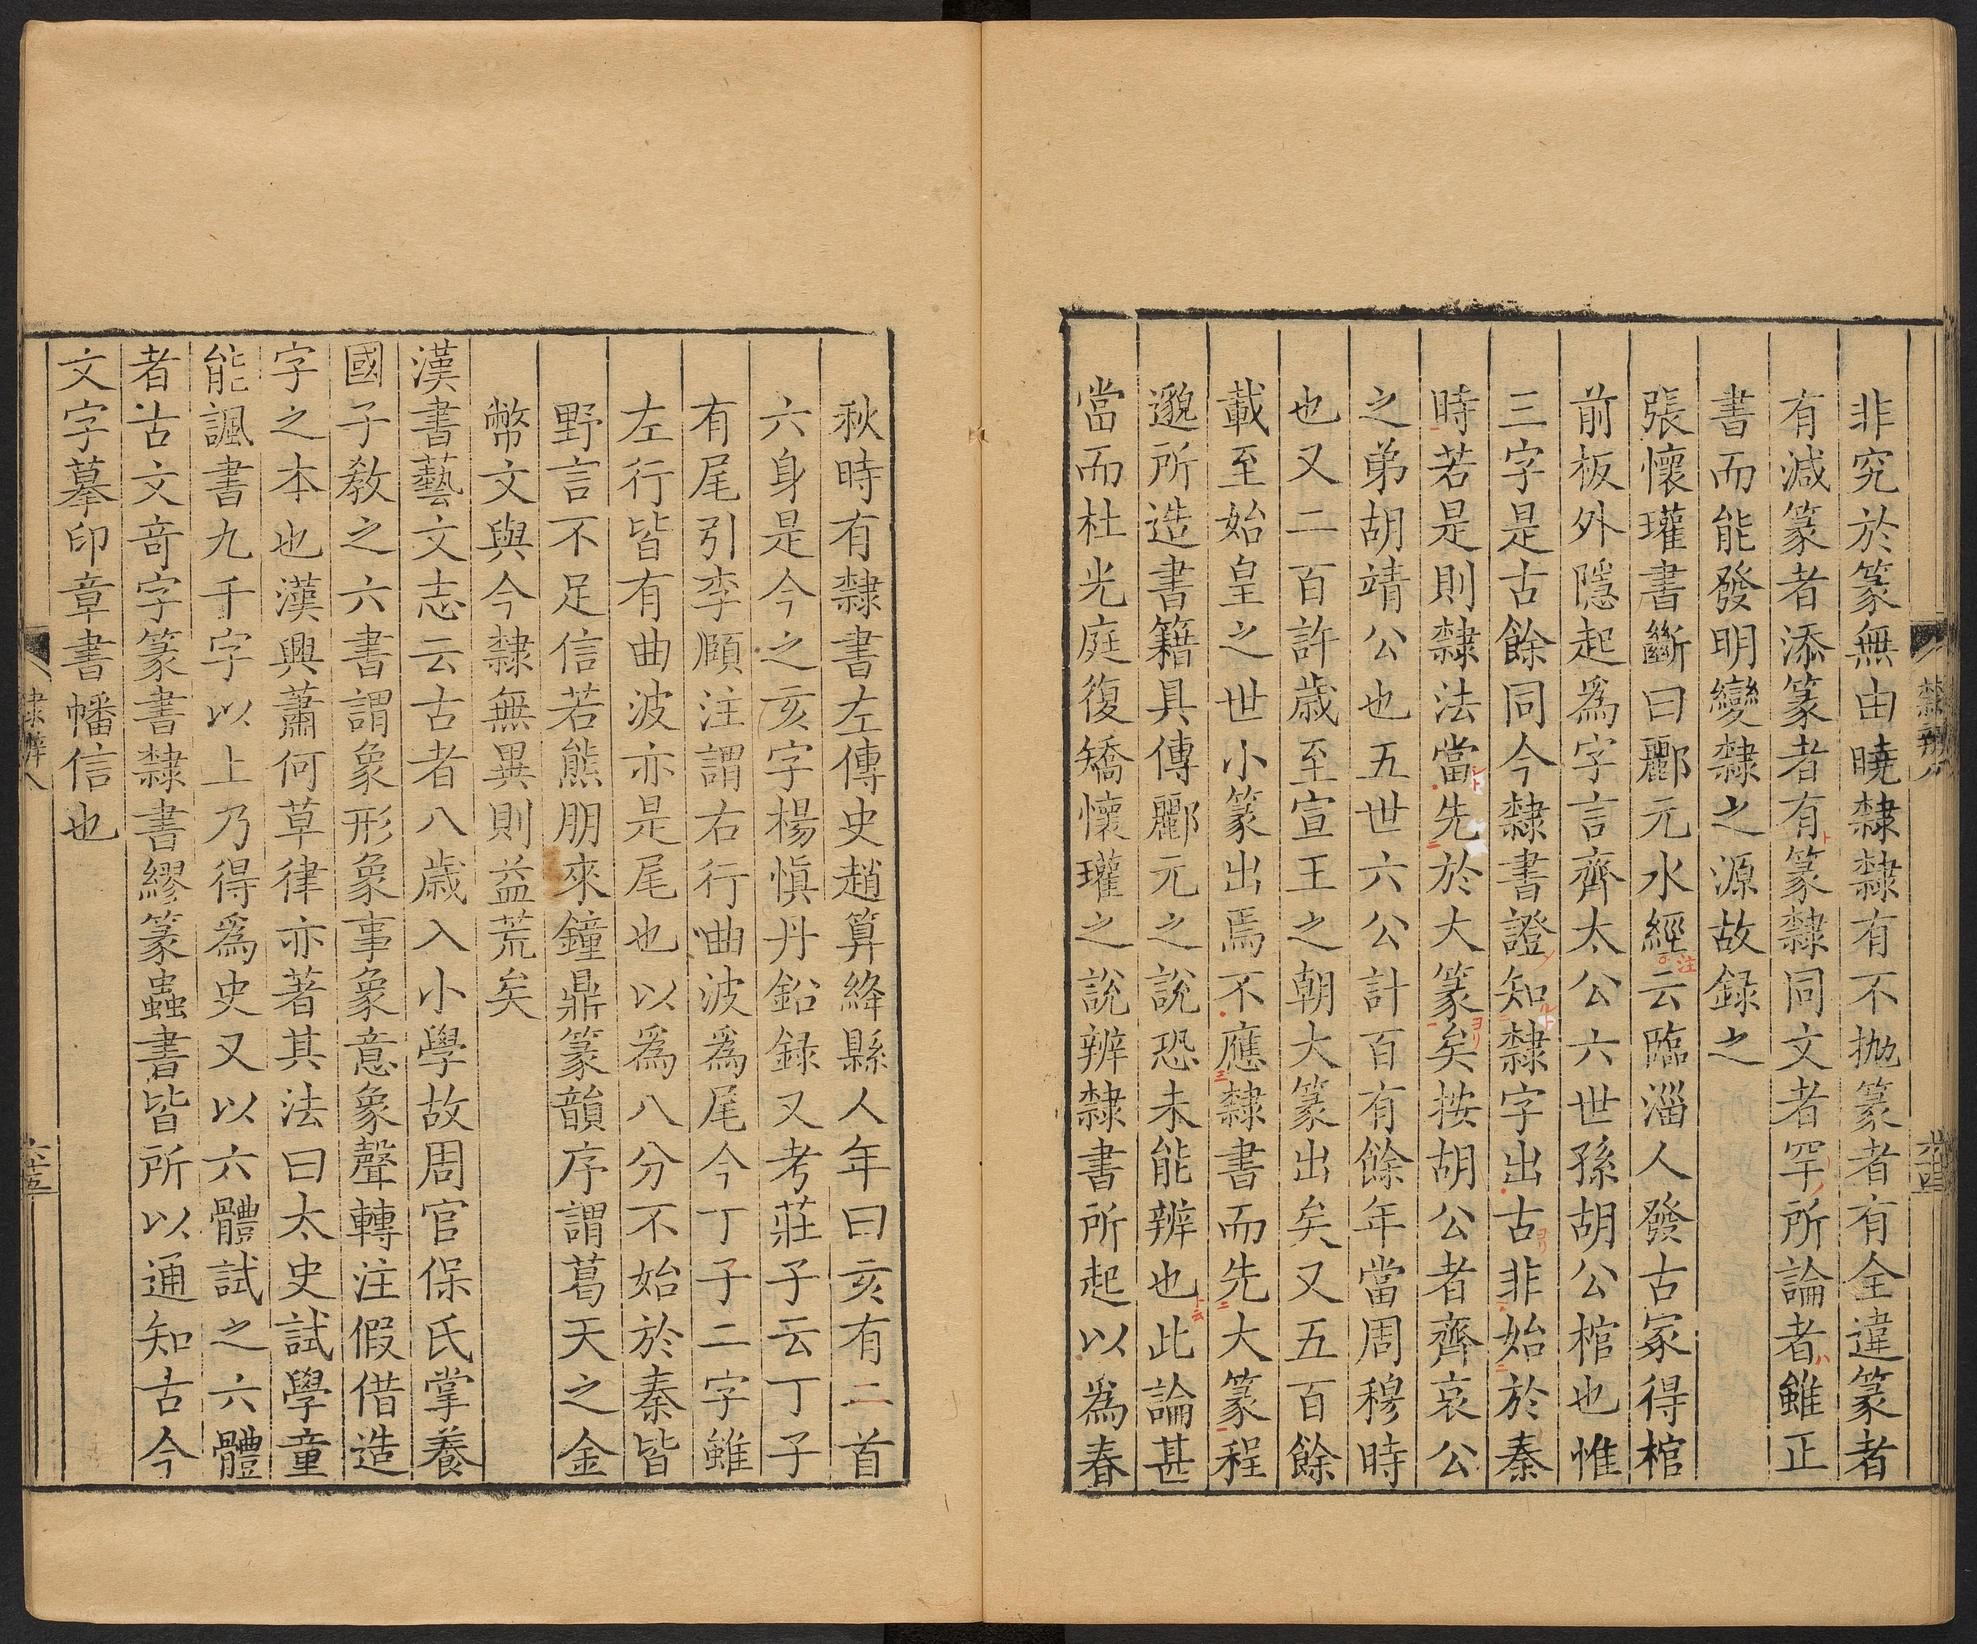 非究於篆無由曉隸隸有不拋篆者有全違篆者
有減篆者添篆者有篆隸同文者罕所論者雖正
書而能發明變隸之源故録之
張懷瓘書斷曰酈元水經云臨淄人發古冢得棺
前板外隱起爲字言齊太公六世孫胡公棺也惟
三字是古餘同今隸書證知隸字出古非始於秦
時若是則隸法當先於大篆矣按胡公者齊哀公
之弟胡靖公也五世六公計百有餘年當周穆時
也又二百許歲至宣王之朝大篆出矣又五百餘
載至始皇之世小篆出焉不應隸書而先大篆程
邈所造書籍具傳酈元之說恐未能辨也此論甚
當而杜光庭復矯懷瓘之說辨隸書所起以為春
隸辨八
秋時有隸書左傳史趙算絳縣人年曰亥有二首
六身是今之亥字楊慎丹鉛録又考莊子云丁子
有尾引李頤注謂右行曲波爲尾今丁子二字雖
左行皆有曲波亦是尾也以爲八分不始於秦皆
野言不足信若熊朋來鐘鼎篆韻序謂葛天之金
幣文與今隸無異則益荒矣
漢書藝文志云古者八歲入小學故周官保氏掌養
國子教之六書謂象形象事象意象聲轉注假借造
字之本也漢興蕭何草律亦著其法曰太史試學童
能諷書九千字以上乃得爲史又以六體試之六體
者古文奇字篆書隸書繆篆蟲書皆所以通知古今
文字摹印章書幡信也
隸辨八